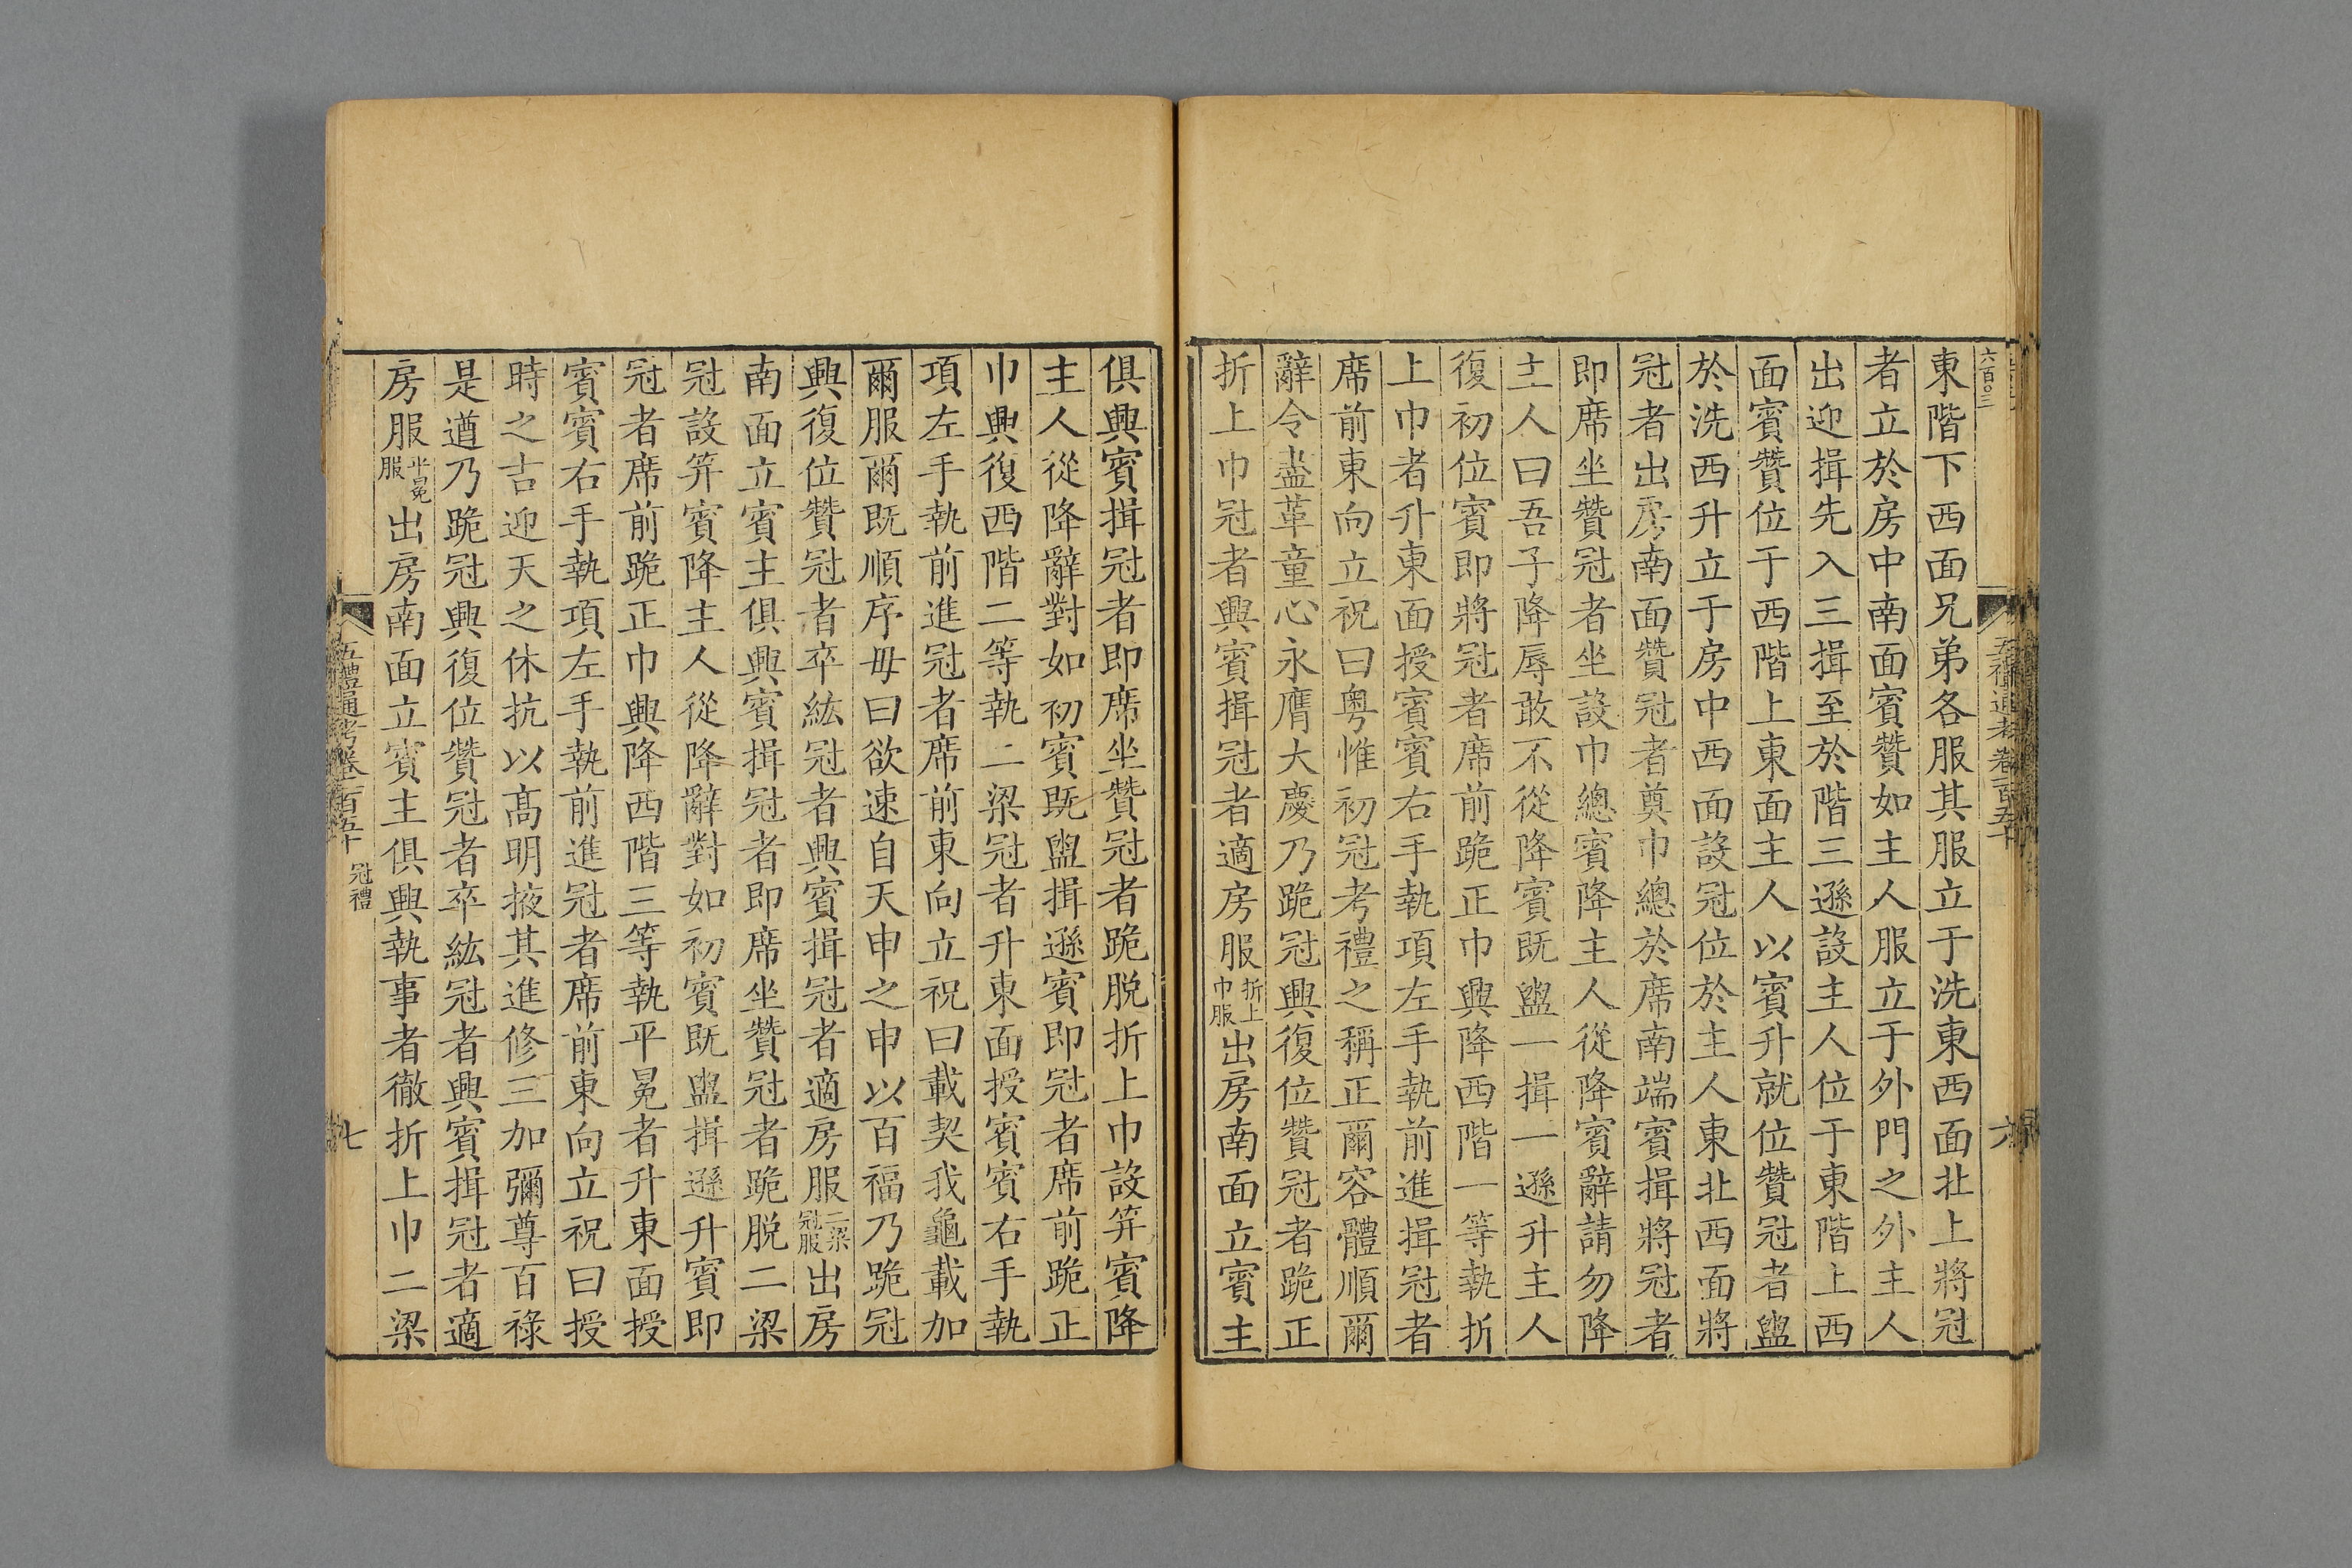 六百〇三
五禮通考卷一百五十
六
東階下西面兄弟各服其服立于洗東西面北上將冠
者立於房中南面賓贊如主人服立于外門之外主人
出迎揖先入三揖至於階三遜設主人位于東階上西
面賓贊位于西階上東面主人以賓升就位贊冠者盥
於洗西升立于房中西面設冠位於主人東北西面將
冠者出房南面贊冠者奠巾總於席南端賓揖將冠者
即席坐贊冠者坐設巾總賓降主人從降賓辭請勿降
主人曰吾子降辱敢不從降賓既盥一揖一遜升主人
復初位賓即將冠者席前跪正巾興降西階一等執折
上巾者升東面授賓賓右手執項左手執前進揖冠者
席前東向立祝曰粤惟初冠考禮之稱正爾容體順爾
辭令盡革童心永膺大慶乃跪冠興復位贊冠者跪正
折上巾冠者興賓揖冠者適房服折上巾服出房南面立賓主
俱興賓揖冠者即席坐贊冠者跪脫折上巾設筓賓降
主人從降辭對如初賓既盥揖遜賓即冠者席前跪正
巾興復西階二等執二梁冠者升東面授賓賓右手執
項左手執前進冠者席前東向立祝曰載契我龜載加
爾服爾既順序毋曰欲速自天申之申以百福乃跪冠
興復位贊冠者卒紘冠者興賓揖冠者適房服二梁冠服出房
南面立賓主俱興賓揖冠者即席坐贊冠者跪脫二梁
冠設筓賓降主人從降辭對如初賓既盥揖遜升賓即
冠者席前跪正巾興降西階三等執平冕者升東面授
賓賓右手執項左手執前進冠者席前東向立祝曰授
時之吉迎天之休抗以高明掖其進修三加彌尊百祿
是遒乃跪冠興復位贊冠者卒紘冠者興賓揖冠者適
房服平冕服出房南面立賓主俱興執事者徹折上巾二梁
五禮通考卷一百五十 冠禮
七